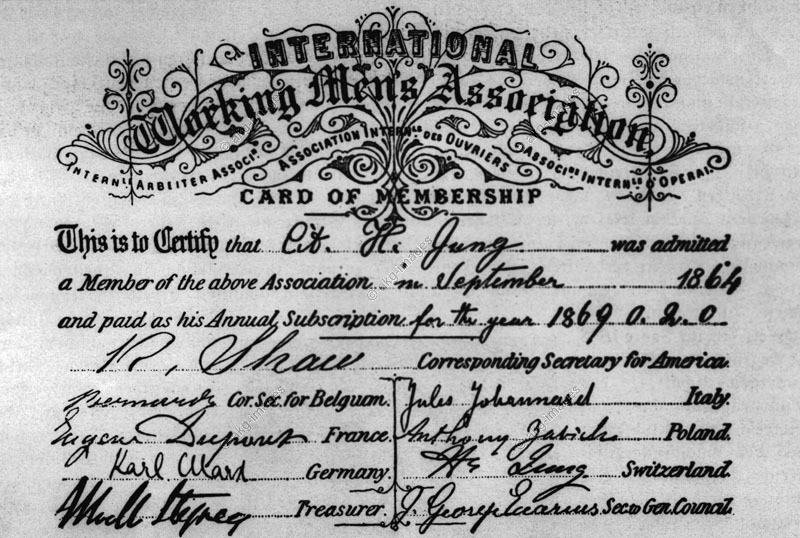 INTERNATIONAL
Working Men's Association
INTERN.LE ARBEITER ASSOCI.N ASSOCIATION INTERN.LE DES OUVRIERS ASSOCI.NE INTERN.LE D'OPERAI.
CARD OF MEMBERSHIP
This is to Certify that Cit. H. Jung was admitted
a Member of the above Association in September 1864
and paid as his Annual Subscription for the year 1869 0. 2. 0
R. Shaw Corresponding Secretary for America.
Bernard Cor. Sec. for Belgium. Jules Johannard Italy.
Eugene Dupont France. Anthony Zabicki Poland.
Karl Marx Germany. H. Jung Switzerland.
Stepney Treasurer. J. George Eccarius Sec. to Gen. Council.
akg-images